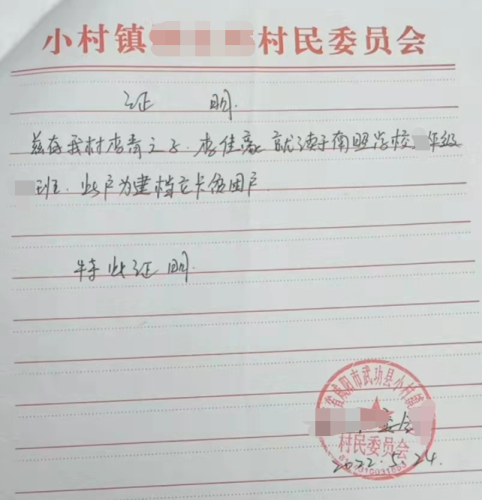 小村镇 村民委员会
证 明
兹有我村李青之子,李佳豪 就读于南照学校 年级
班.此户为建档立卡贫困户
特此证明
省咸阳市武功县小村镇
委会
村民委员会
2022.5.24.